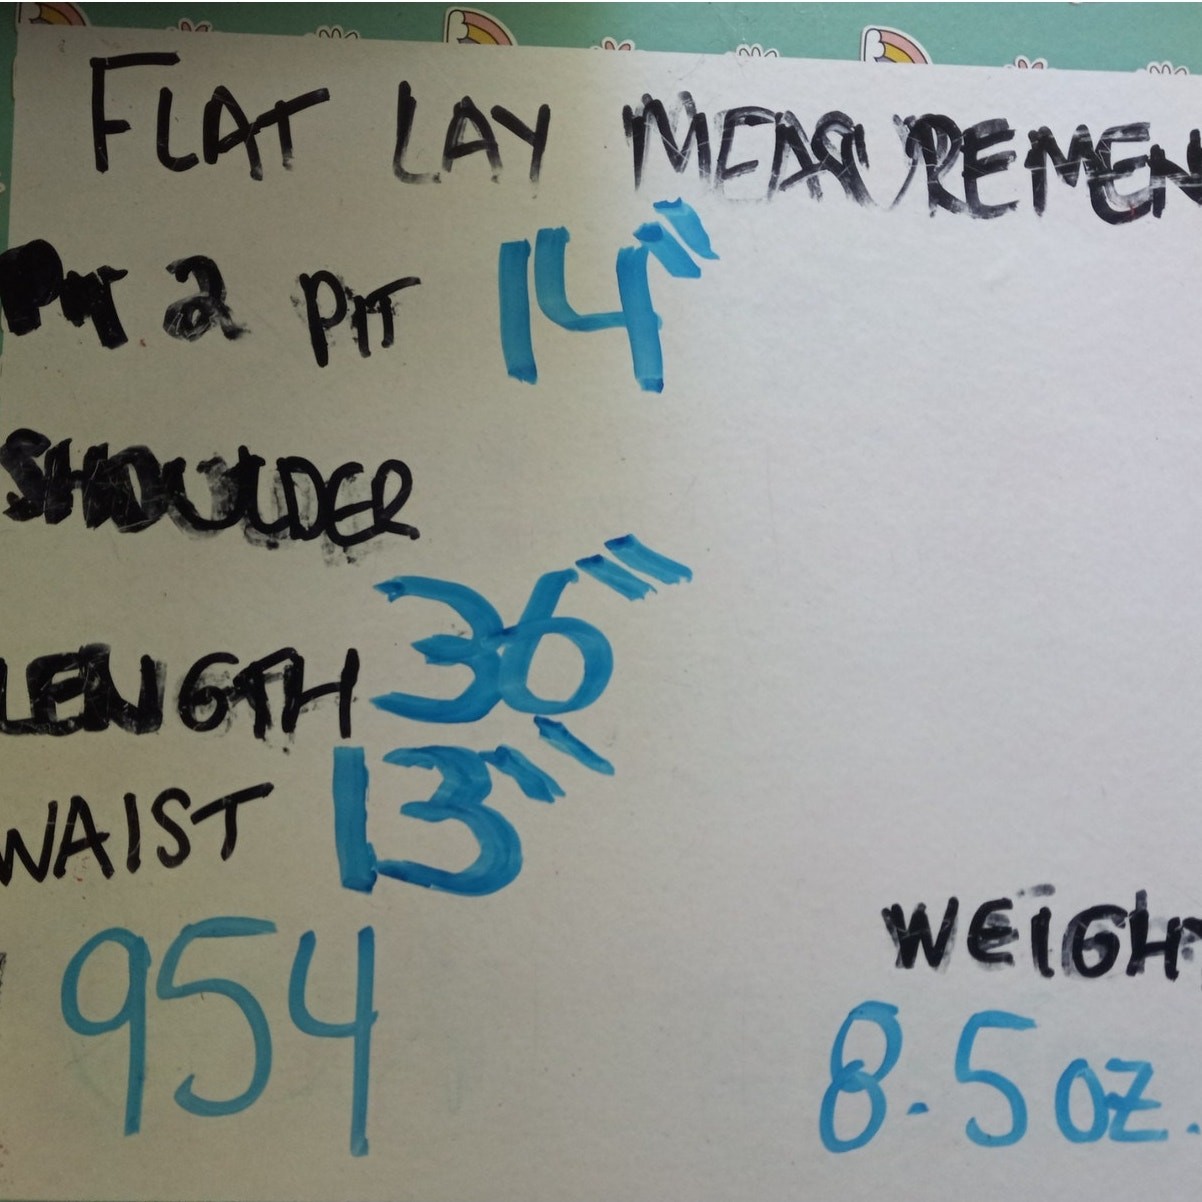 FLAT LAY MEASUREMEN
PIT 2 PIT 14"
SHOULDER
LENGTH 36"
WAIST 13"
954
WEIGHT
8.5 oz.